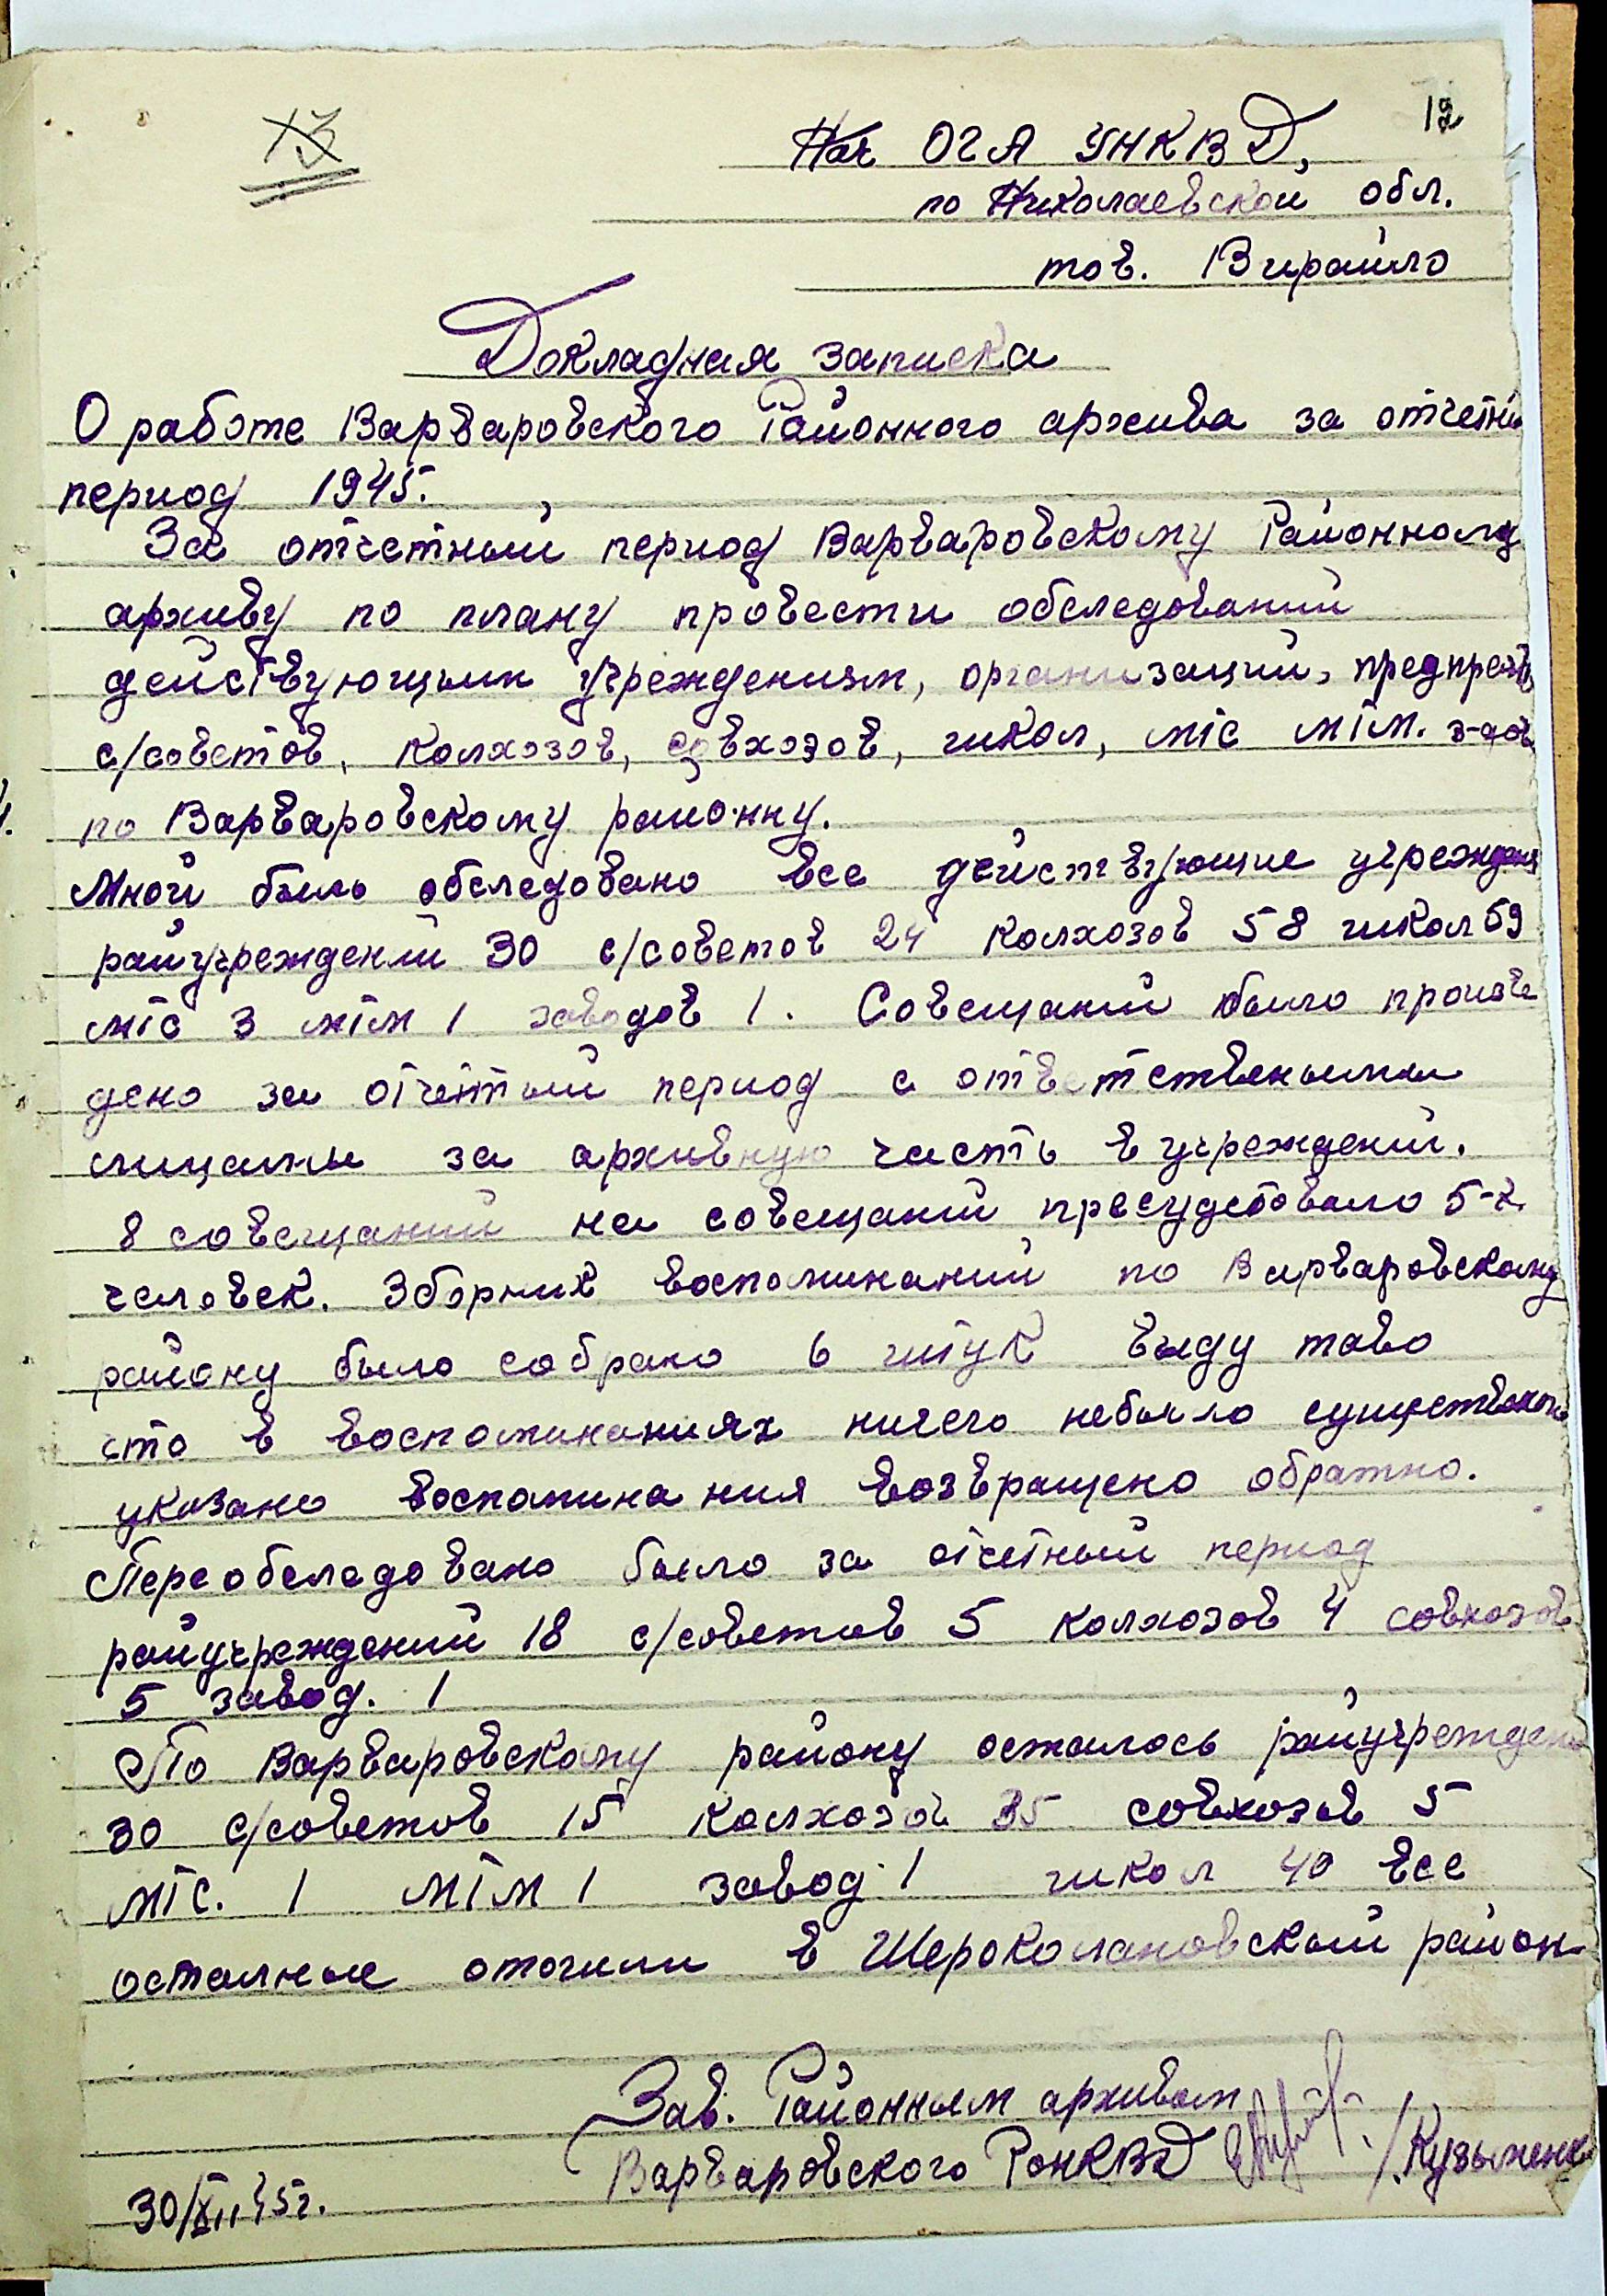 12
13
Нач ОГА УНКВД,
по Николаевской обл.
тов. Вирайло
Докладная записка
О работе Варваровского Районного архива за отчетны
период 1945.
За отчетный период Варваровскому Районному
архиву по плану провести обследований
действующим учреждениям, организаций, предпреят
с/советов, колхозов, совхозов, школ, мтс мтм. з-дов
по Варваровскому районну.
Мной было обследовано все действующие учрежден
райучреждений 30 с/советов 24 колхозов 58 школ 59
мтс 3 мтм 1 заводов 1. Совещаний было произве
дено за отчетный период с ответственными
лицами за архивную часть в учреждений.
8 совещаний на совещаний пресудствовало 5-2
человек. Зборник воспоминаний по Варваровскому
району было собрано 6 штук ввиду таво
что в воспоминаниях ничего небыло существеного
указано воспоминания возвращено обратно.
Переобследовано было за отчетный период
райучреждений 18 с/советов 5 колхозов 4 совхозов
5 завод. 1
По Варваровскому району осталось райучрежден
30 с/советов 15 колхозов 35 совхозов 5
мтс. 1 мтм 1 завод 1 школ 40 все
остальные отошли в Шероколановский район
Зав. Районным архивом
Варваровского РОНКВД /Кузьменко
30/XII 45г.